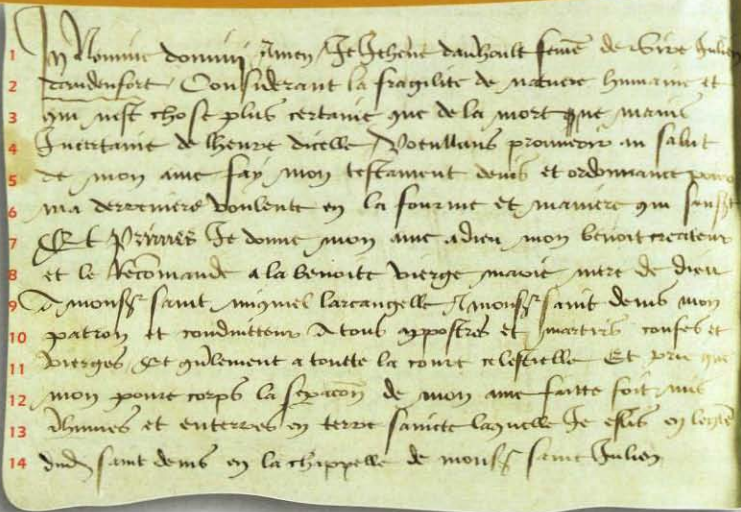 1 In Nomine domini Amen Je Jehene dauhoult feme de Sire Julien
2 daudenfort Considerant la fragilite de nature humaine et
3 quil nest chose plus certaine que de la mort ne mains
4 Incertaine de lheure dicelle Voeullans prouveoir au salut
5 de mon ame fay mon testament devis et ordonnance pour
6 ma derreniere voulente en la fourme et maniere qui sensst
7 Et Primes Je donne mon ame a dieu mon benoit createur
8 et le Recomande a la benoitte vierge marie mere de dieu
9 A monsr saint miquiel larcangelle A monsr saint denis mon
10 patron et conduitteur A tous appostres et martirs confes et
11 vierges Et gnlement a toutte la court celestielle Et pri que
12 mon poure corps la sepacon de mon ame faitte soit mis
13 Inhumes et enterres en terre saincte laquelle Je eslis en leglise
14 dud saint denis en la chappelle de monsr saint Julien